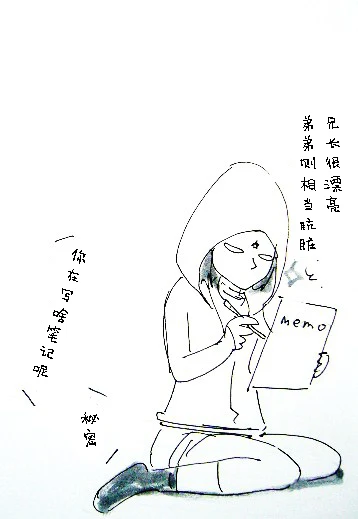 兄长很漂亮
弟弟则相当肮脏
と
memo
你在写啥笔记呢
秘密